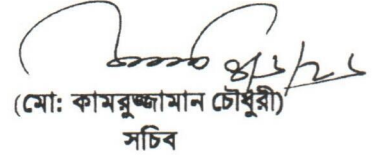 (মো: কামরুজ্জামান চৌধুরী)
সচিব